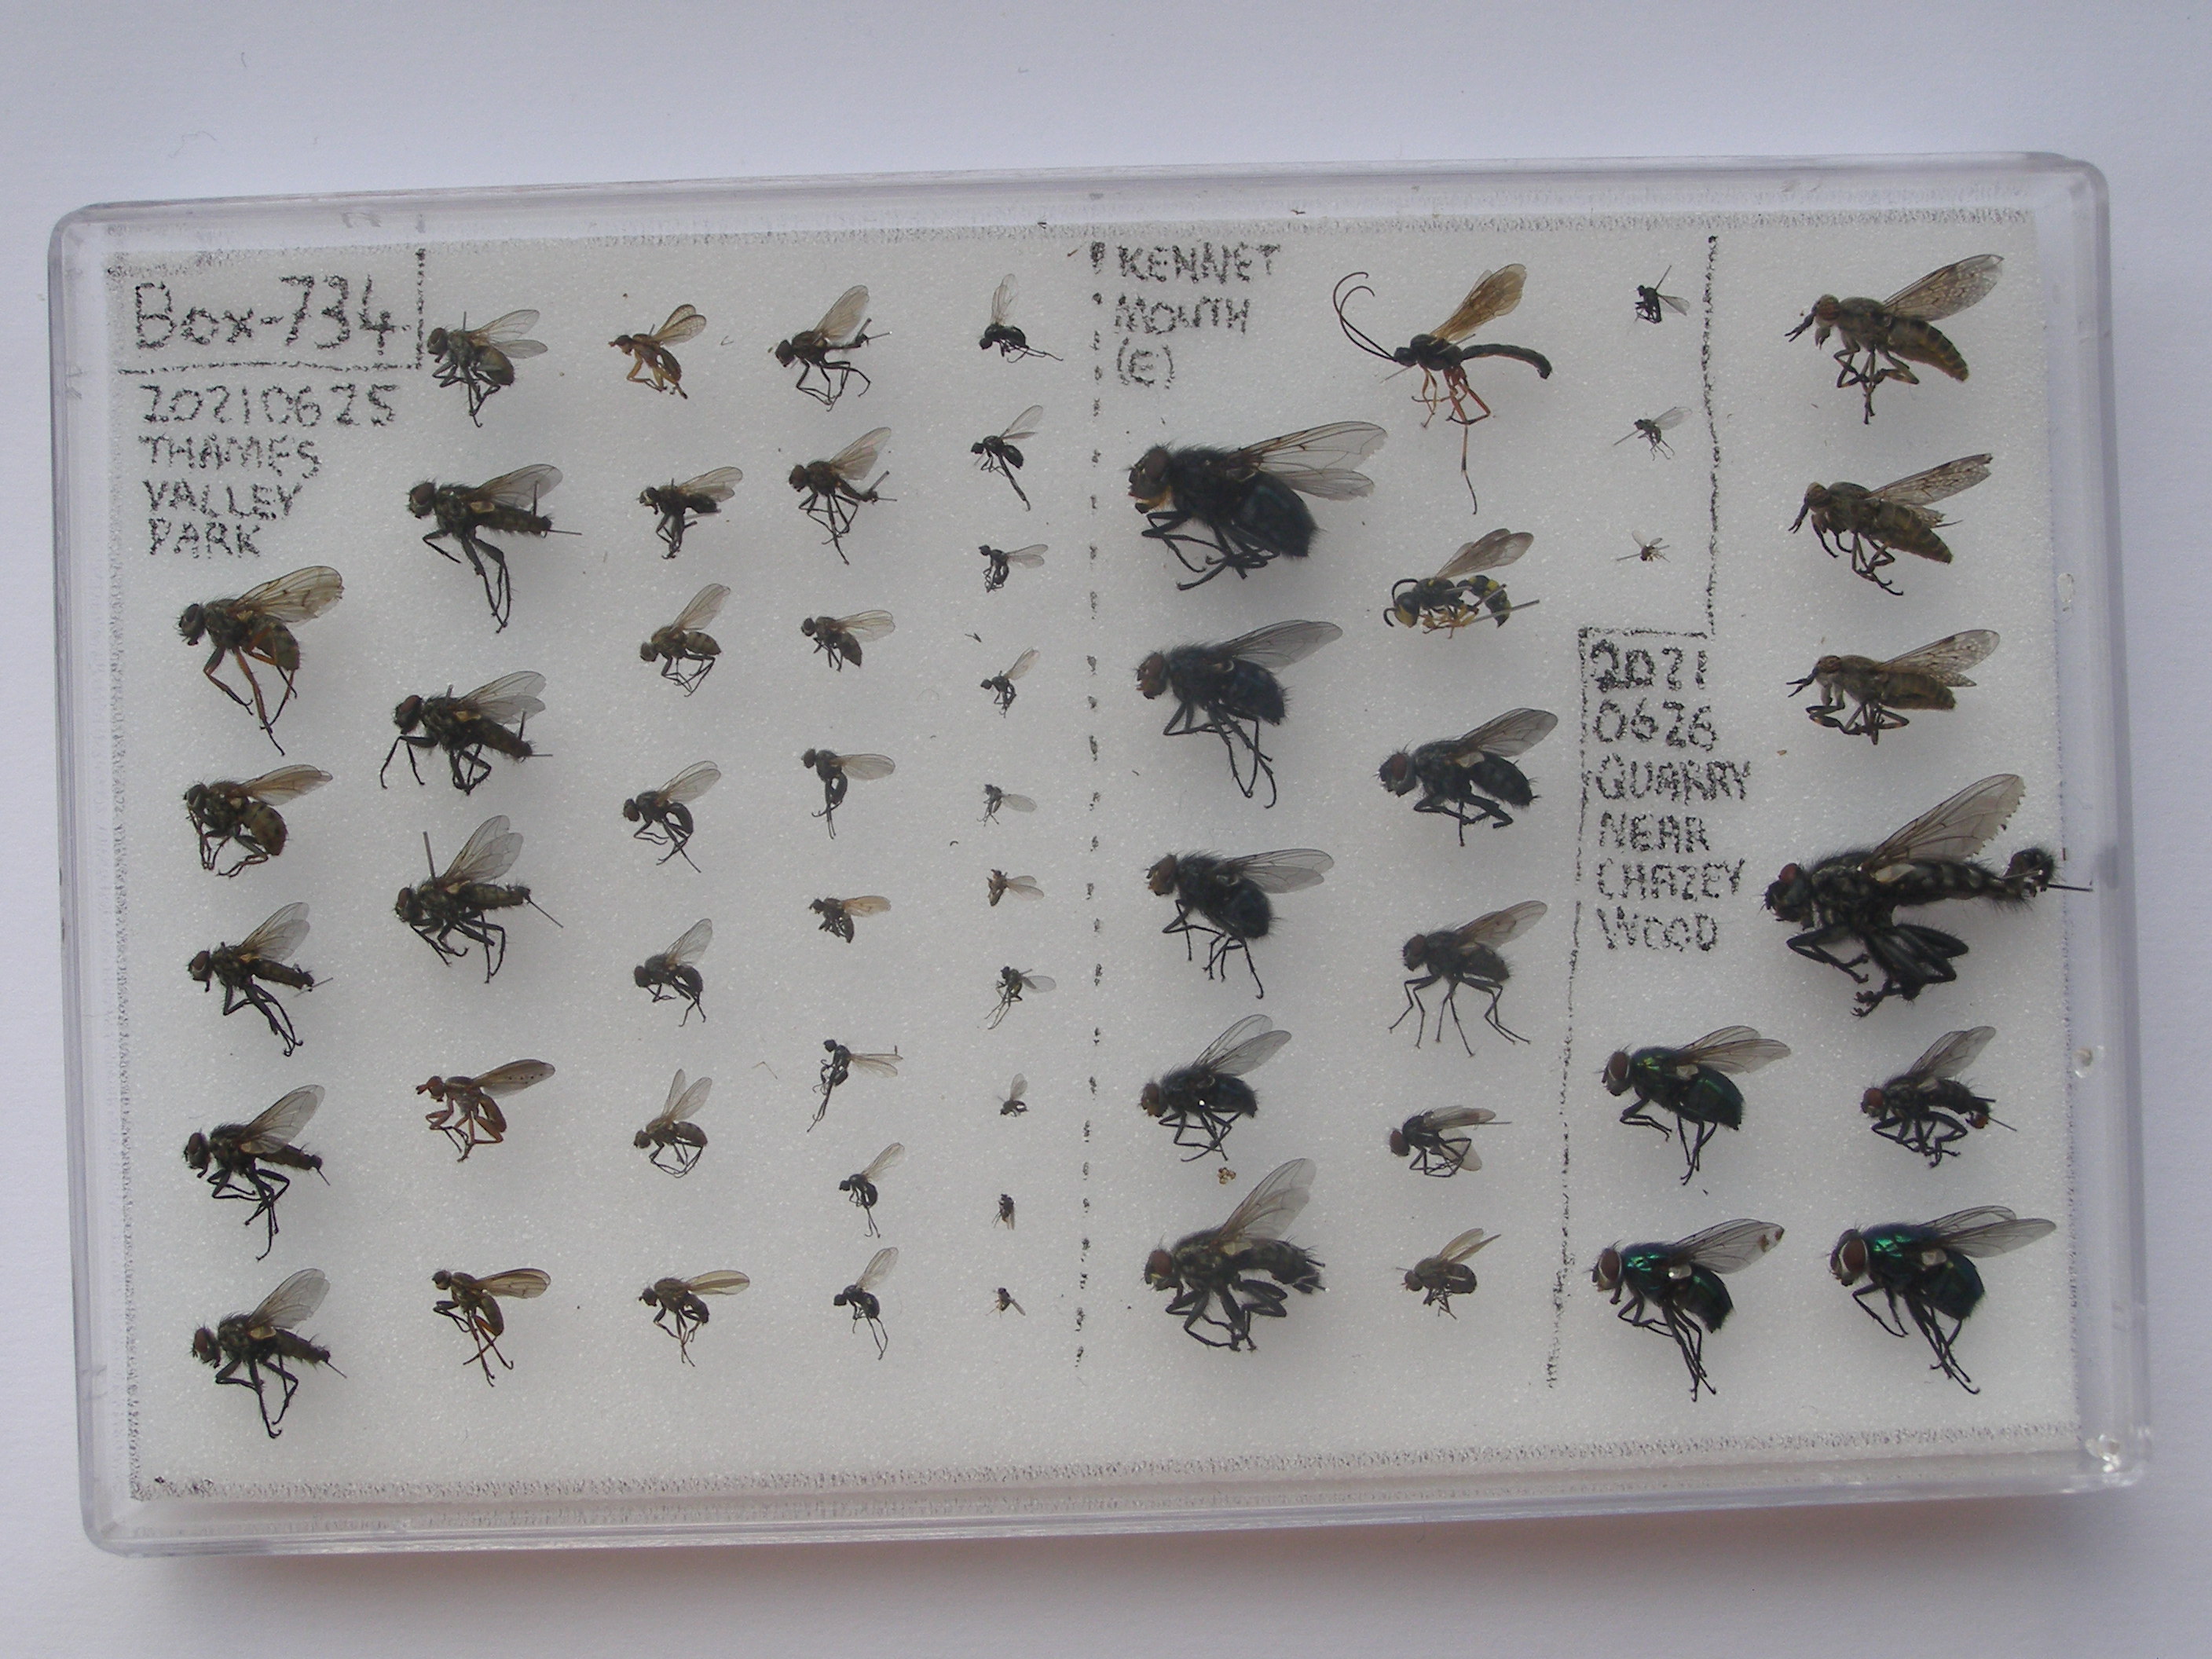 Box-734
20210625
THAMES
VALLEY
PARK
KENNET
MOUTH
(E)
2021
0626
QUARRY
NEAR
CHAZEY
WOOD